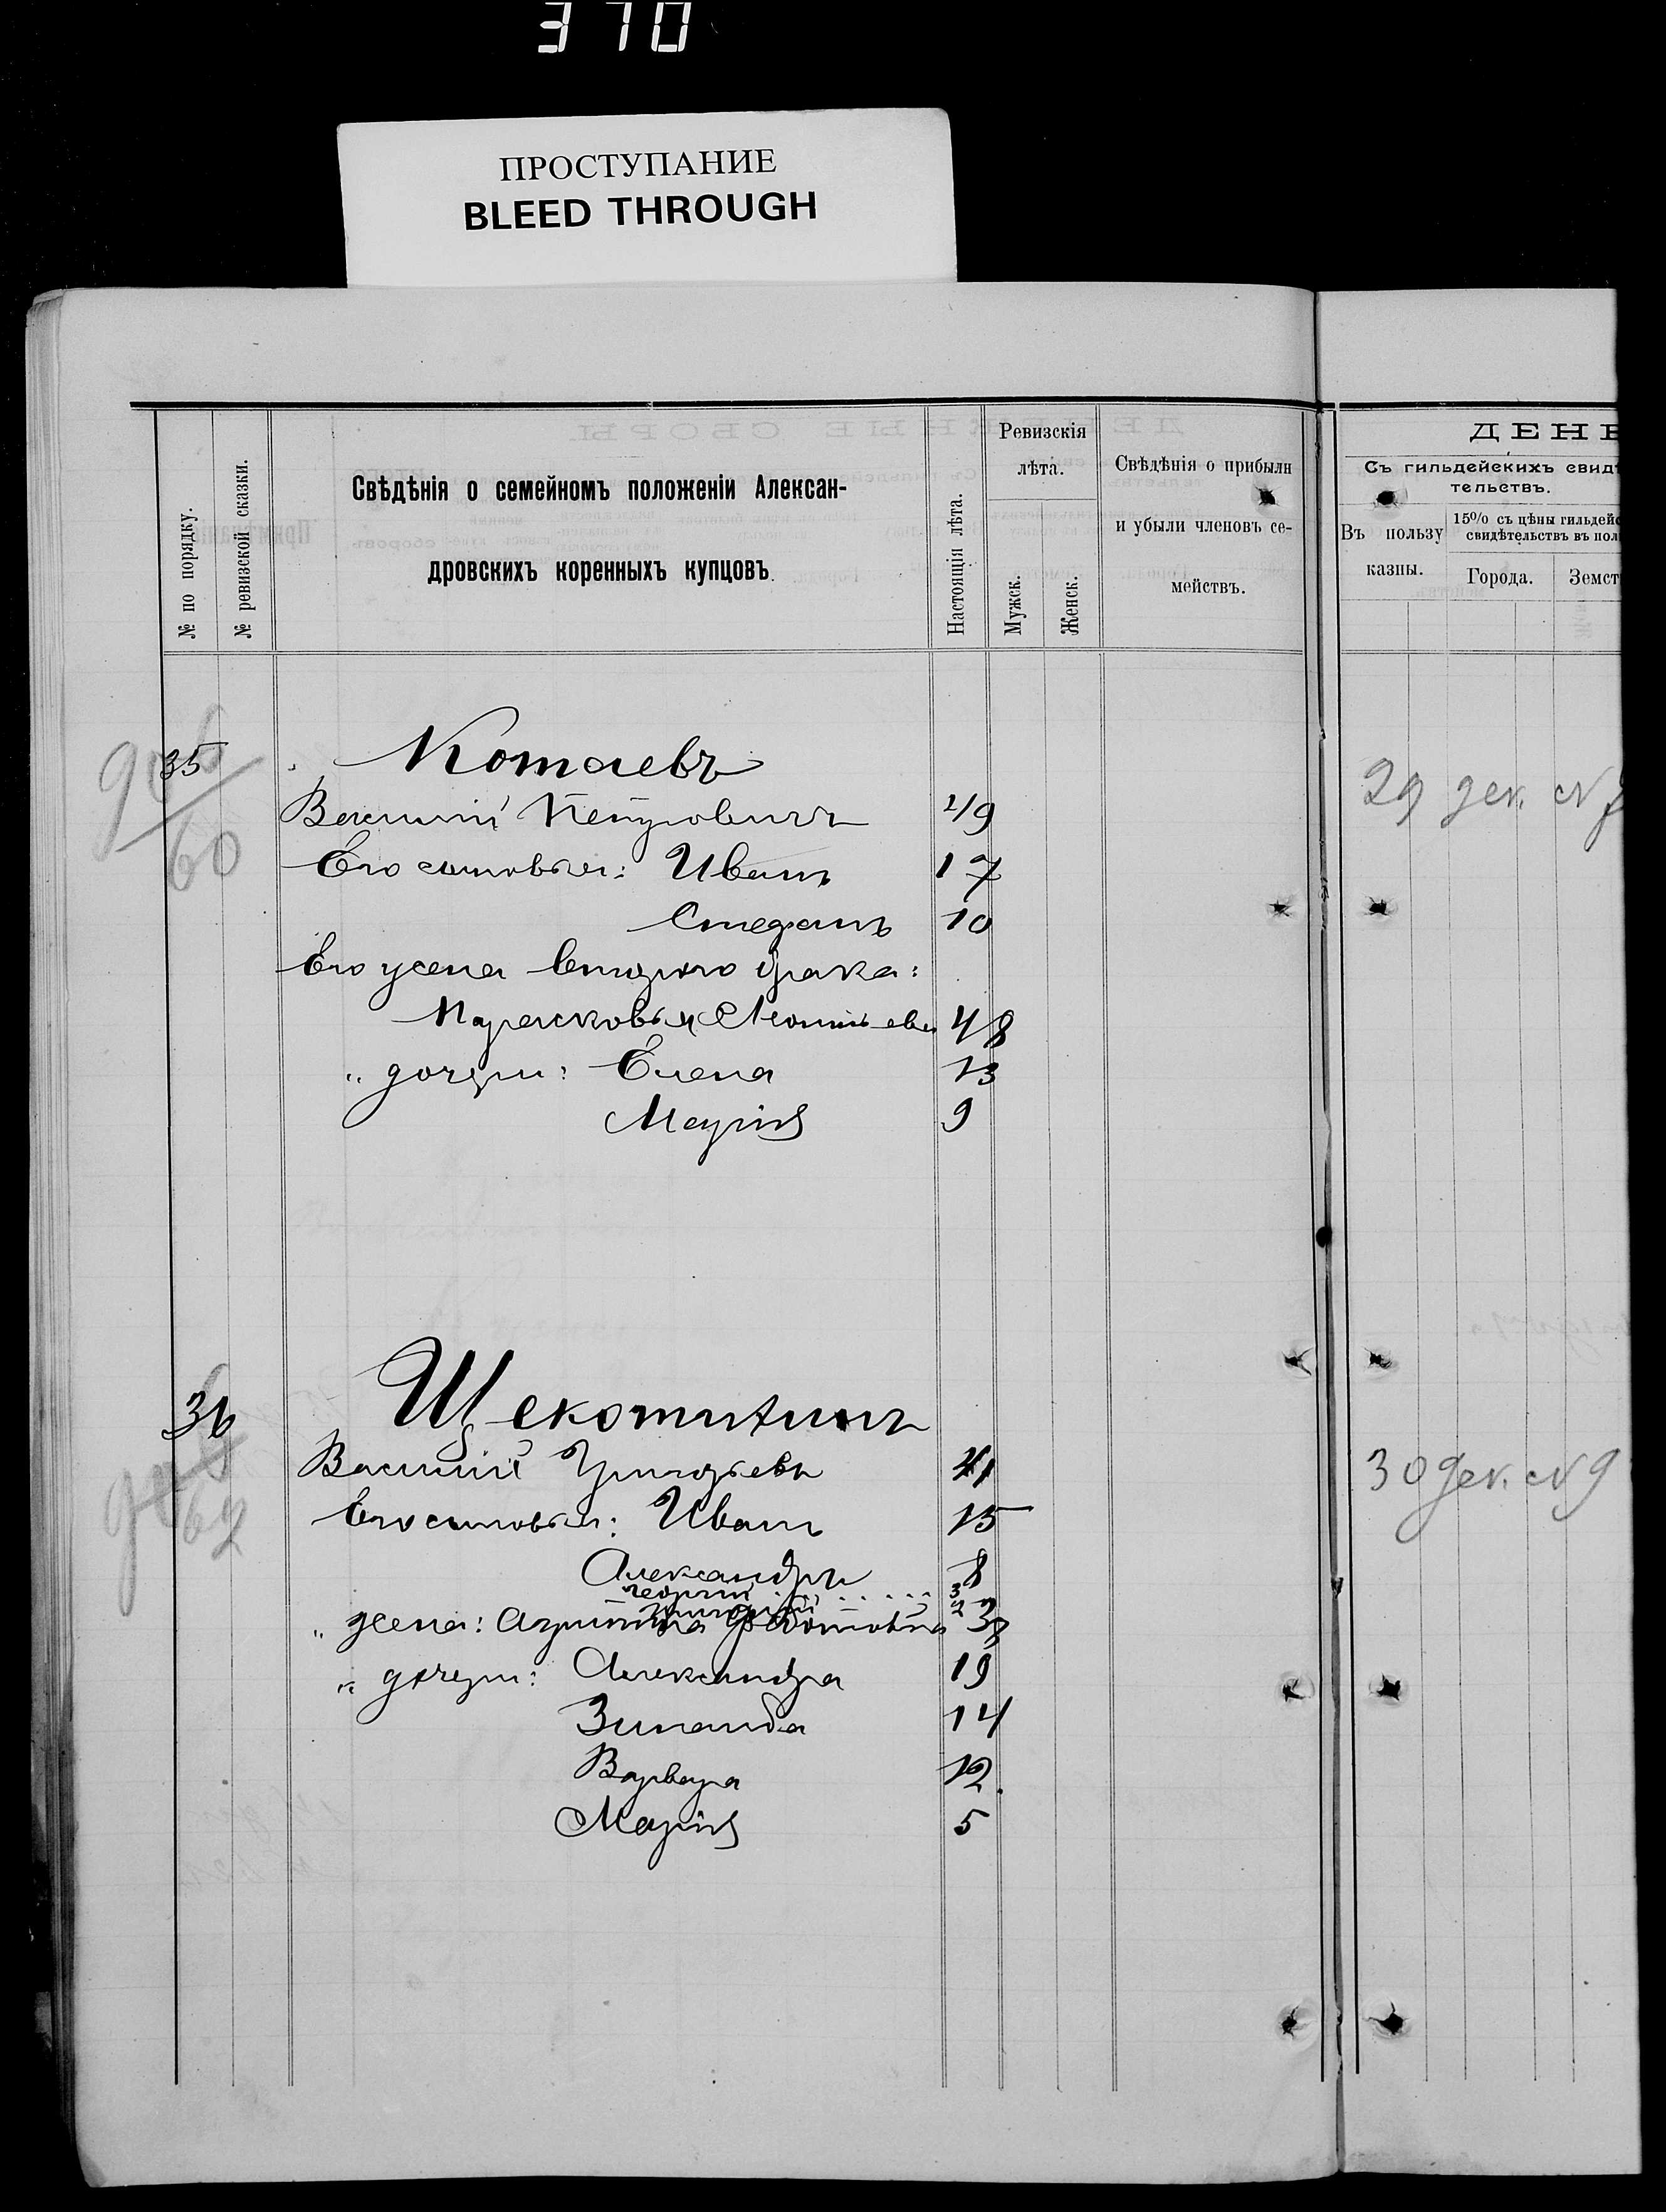 370
ПРОСТУПАНИЕ
BLEED THROUGH
№ по порядку.
№ ревизской сказки.
Свѣдѣнія о семейномъ положеніи Алексан-
дровскихъ коренныхъ купцовъ.
Настоящія лѣта.
Ревизскія
лѣта.
Мужск.
Женск.
Свѣдѣнія о прибыли
и убыли членовъ се-
мействъ.
ДЕНЕ
Съ гильдейскихъ свидѣ
тельствъ.
Въ пользу
казны.
15% съ цѣны гильдейс
свидѣтельствъ въ пол
Города.
Земст
35 Котаевъ
60
Василій Петровичъ 49 29 дек. №
Его сыновья: Иванъ 17
Стефанъ 10
Его жена второго брака:
Парасковья Леонтьева 48
" дочери: Елена 13
Марія 9
36 Щекотихинъ
62
Василій Григорьевъ 41 30 дек. № 9
Его сыновья: Иванъ 15
Александръ 8
Георгій 3
Григорій 2
" жена: Агриппина Федотовна 38
" дочери: Александра 19
Зинаида 14
Варвара 12.
Марія 5